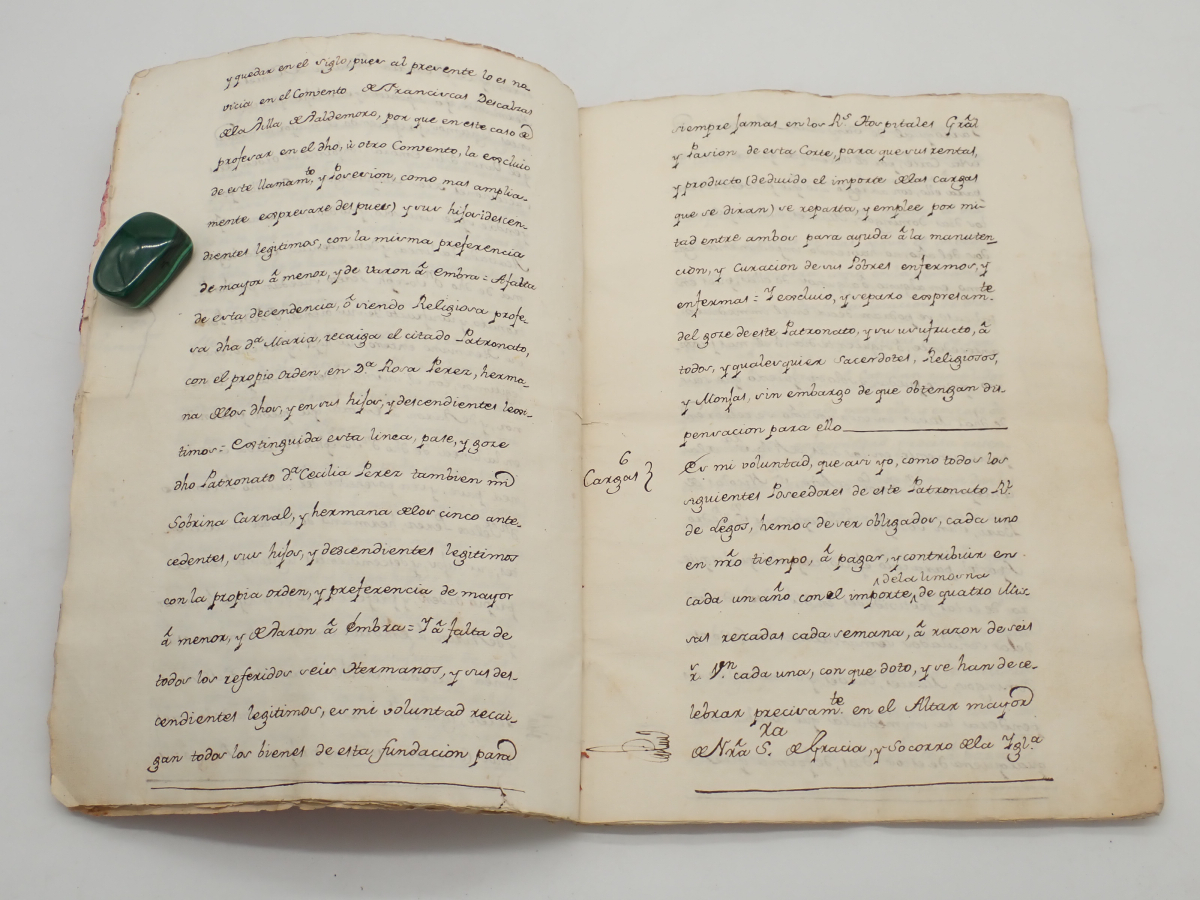 y quedar en el siglo, pues al presente lo es no-
vicia en el Convento de Franciscas Descalzas
de la Villa de Valdemoro, por que en este caso de
profesar en el dho, ù otro Convento, la excluio
de este llamam.to y Posesion, como mas amplia-
mente expresare despues) y sus hijos, descen-
dientes legitimos, con la misma preferencia
de mayor â menor, y de varon â embra = A falta
de esta decendencia, ô siendo Religiosa profe-
sa dha d.a Maria, recaiga el citado Patronato,
con el propio orden en D.a Rosa Perez, herma-
na de los dhos, y en sus hijos, y descendientes lexi-
timos = Extinguida esta linea, pase, y goze
dho Patronato d.a Cecilia Perez tambien mi
Sobrina Carnal, y hermana de los cinco ante-
cedentes, sus hijos, y descendientes legitimos
con la propia orden, y preferencia de mayor
â menor, y de Varon â embra = Y â falta de
todos los referidos seis Hermanos, y sus des-
cendientes legitimos, es mi voluntad recai-
gan todos los bienes de esta fundacion para
siempre Jamas en los R.s Hospitales Grâl
y Pasion de esta Corte, para que sus rentas,
y producto (deducido el importe de las cargas
que se diran) se reparta, y emplee por mi-
tad entre ambos para ayuda â la manuten-
cion, y Curacion de sus Pobres enfermos, y
enfermas = Y excluio, y separo expresam.te
del goze de este Patronato, y su usufructo, â
todos, y qualesquier Sacerdotes, Religiosos,
y Monjas, sin embargo de que obtengan dis-
pensacion para ello
6
Cargas}
Es mi voluntad, que asi yo, como todos los
siguientes Poseedores de este Patronato R.l
de Legos, hemos de ser obligados, cada uno
en nrô tiempo, â pagar, y contribuir en
cada un año con el importe, de la limosna de quatro Mi-
sas rezadas cada semana, â razon de seis
r.s V.n cada una, con que doto, y se han de ce-
lebrar precisam.te en el Altar mayor
de Nrâ S.ra de Gracia, y Socorro de la Ygl.a